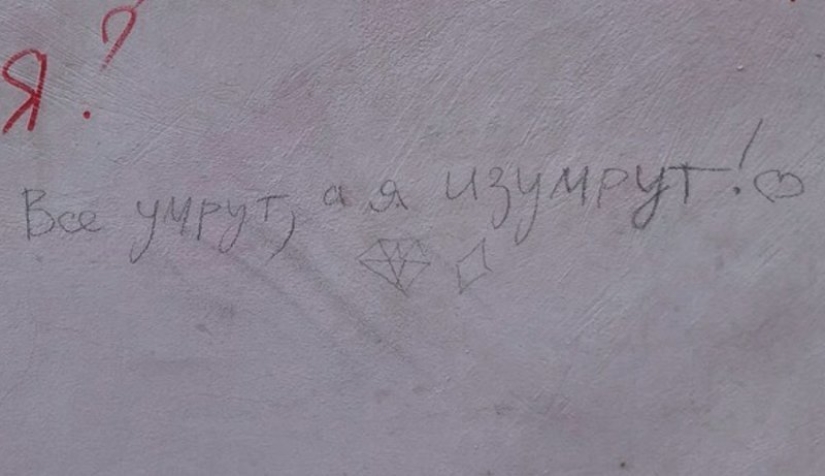 Я?
Все умрут, а я изумрут!